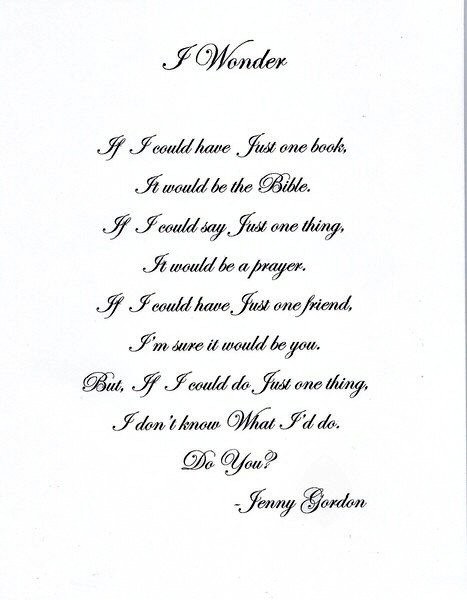 I Wonder
If I could have Just one book,
It would be the Bible.
If I could say Just one thing,
It would be a prayer.
If I could have Just one friend,
I'm sure it would be you.
But, If I could do Just one thing,
I don't know What I'd do.
Do You?
-Jenny Gordon